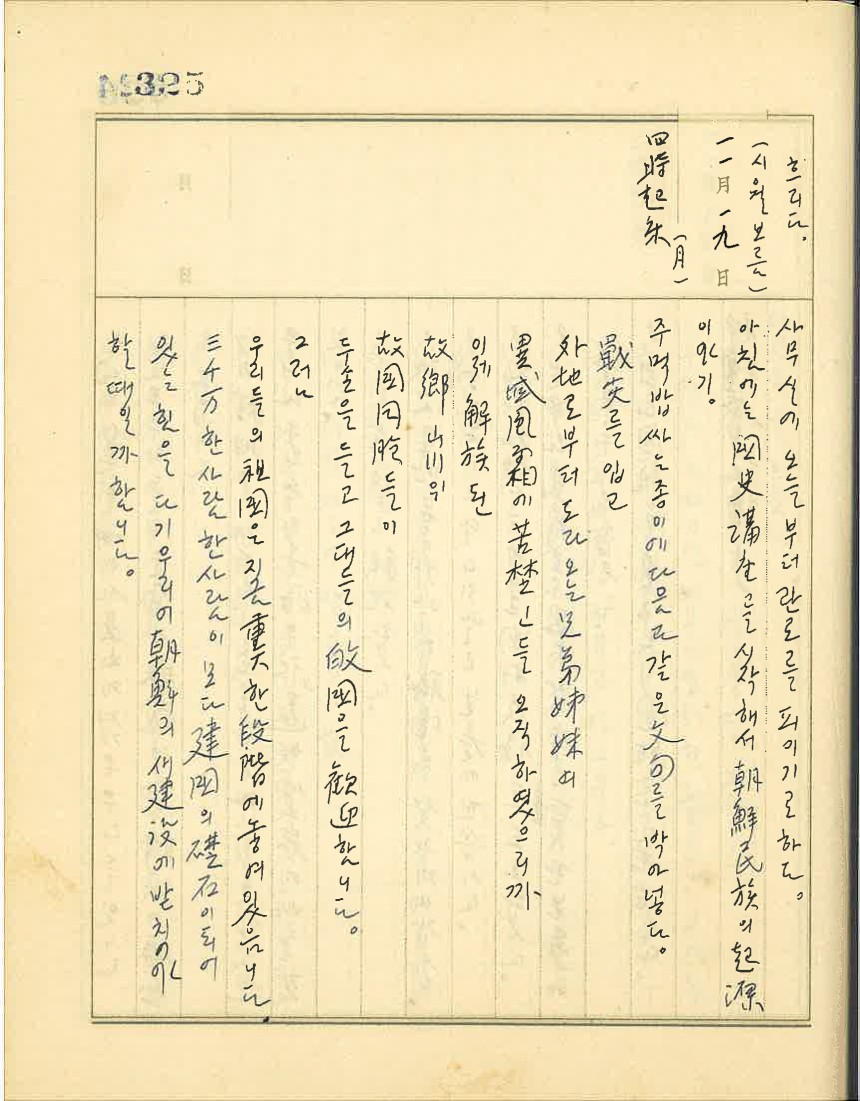 325
흐리다.
(시월 보름)
一一月 一九日
(月)
四時起床
사무실에 오늘부터 란로를 피이기로 하다.
아침에는 國史講座를 시작해서 朝鮮民族의 起源
이야기.
주먹밥 싸는 종이에 다음과 같은 文句를 박아 넣다.
戰災를 입고
外地로부터 도라오는 兄弟姉妹의
異域風霜에 苦楚인들 오직하였으리까
이제 解放된
故鄕山川위
故國同胞들이
두손을 들고 그대들의 故國을 歡迎합니다.
그러나
우리들의 祖國은 지금 重大한 段階에 놓여있읍니다
三千万 한사람 한사람이 모다 建国의 礎石이 되어
있는 힘을 다 기우리어 朝鮮의 새建設에 받치어야
할 때일까 합니다.